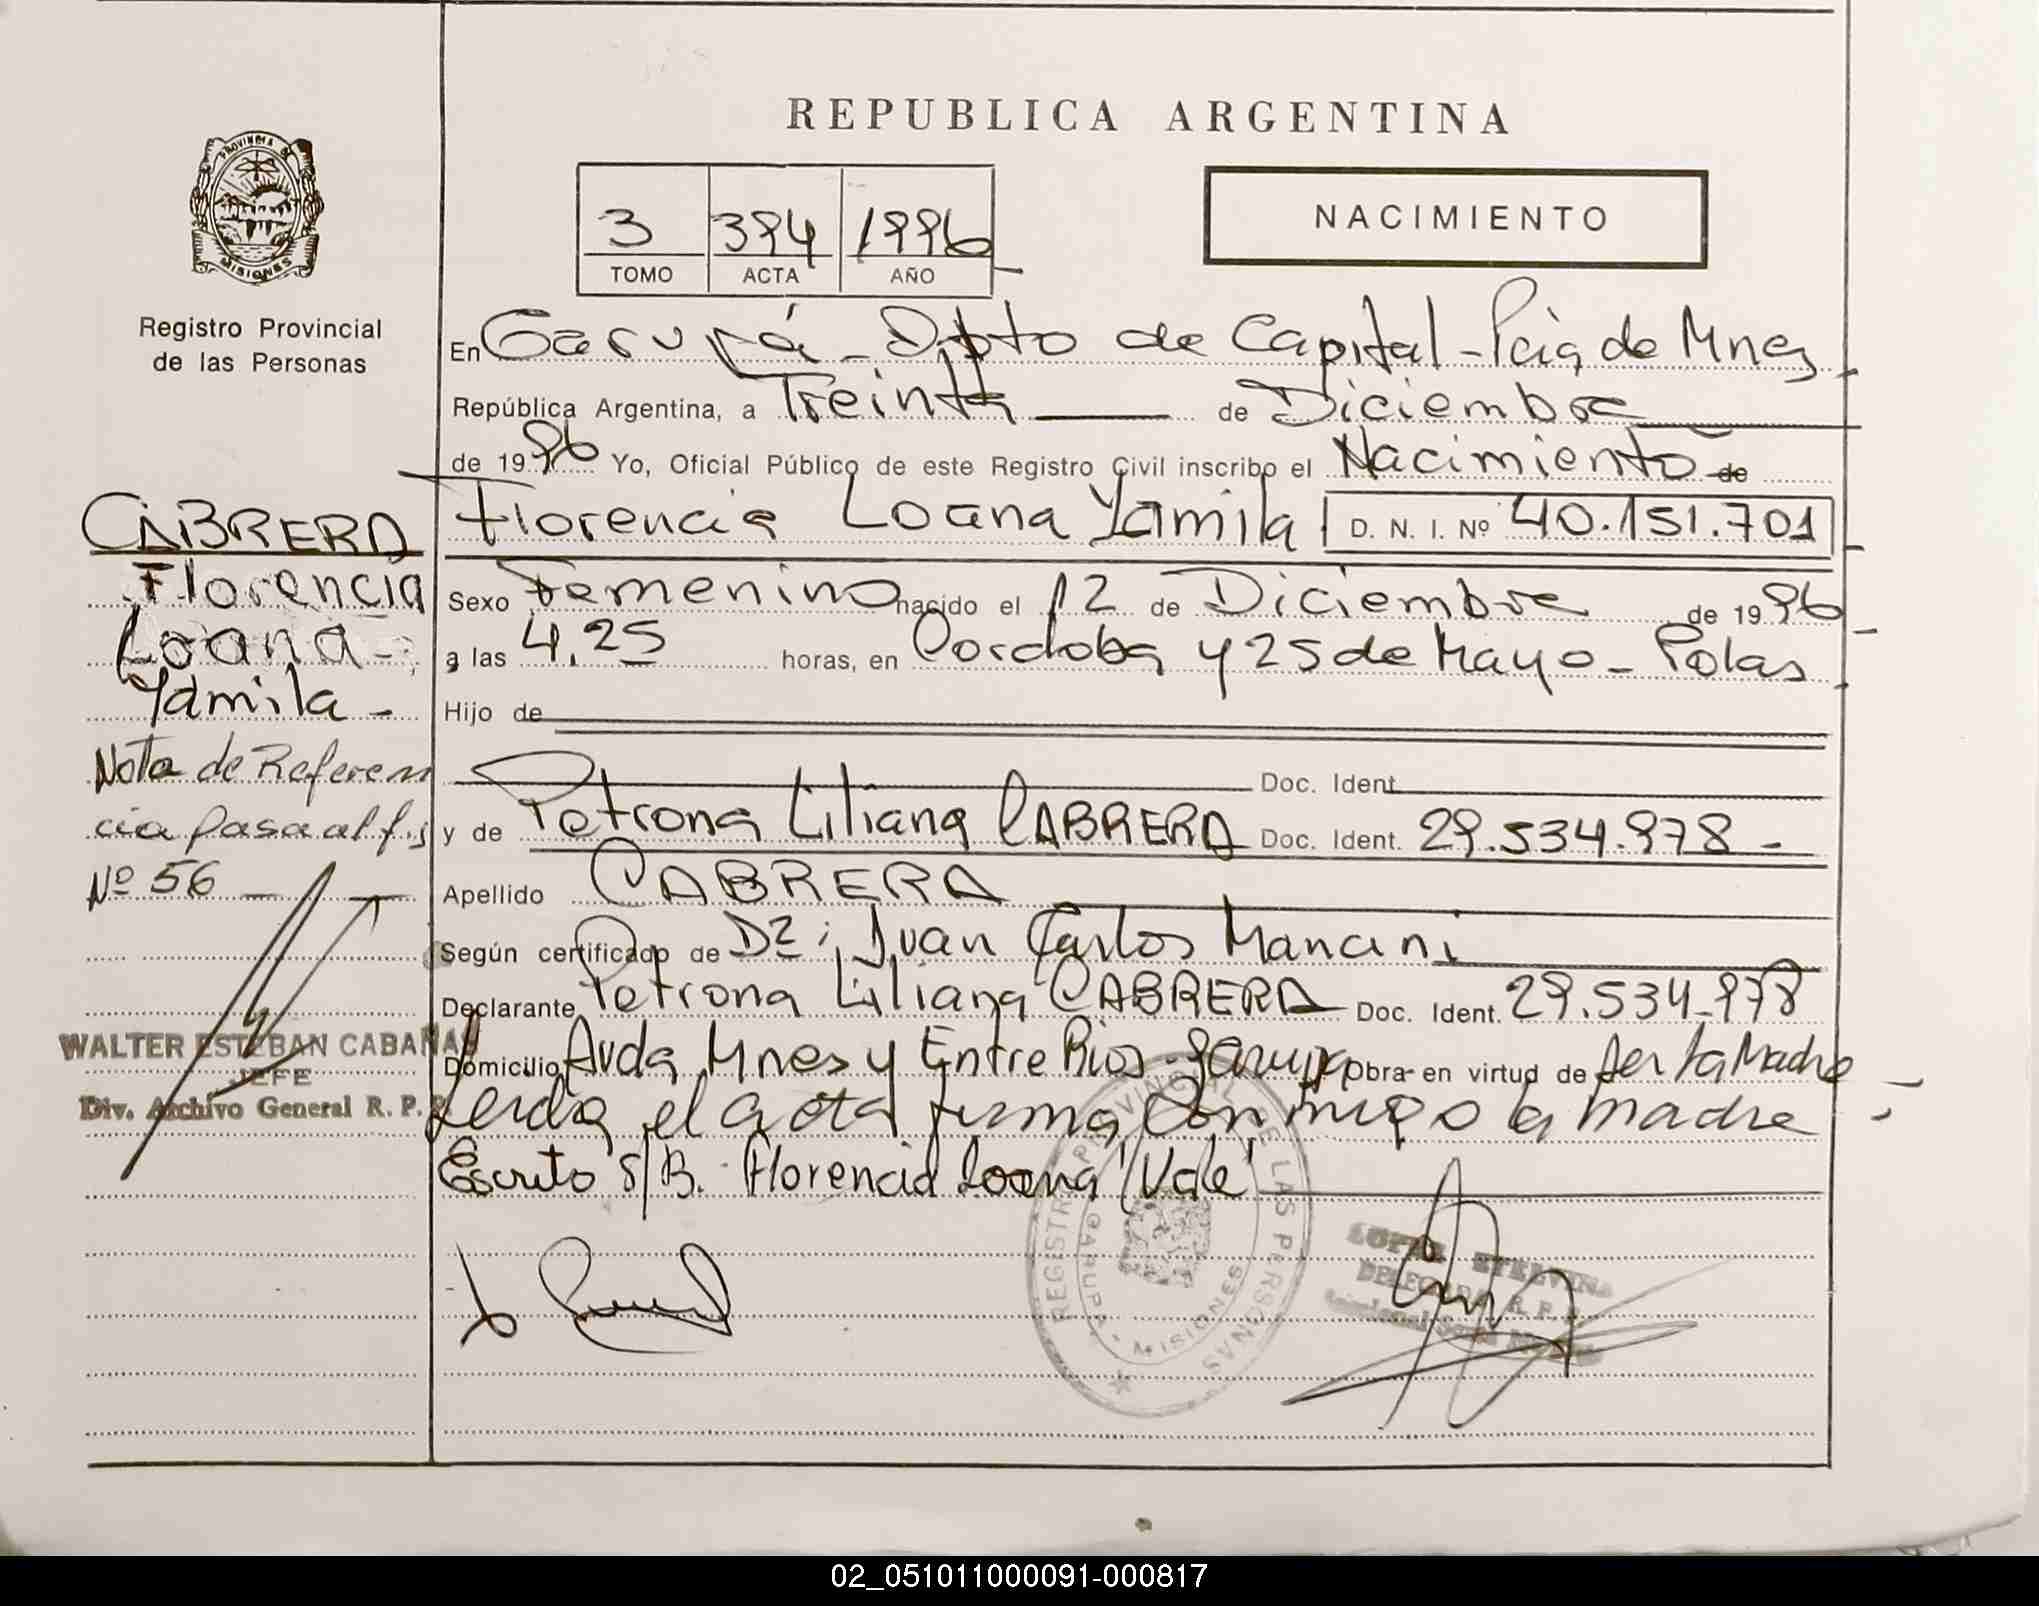 REPUBLICA ARGENTINA
PROVINCIA DE
MISIONES
Registro Provincial
de las Personas
3 394 1996
TOMO ACTA AÑO
NACIMIENTO
En Garupá - Dpto de Capital - Pcia de Mnes
República Argentina, a Treinta de Diciembre
de 1996 Yo, Oficial Público de este Registro Civil inscribo el Nacimiento de
Florencia Loana Yamila D. N. I. Nº 40.151.701
Sexo Femenino nacido el 12 de Diciembre de 1996
a las 4,25 horas, en Cordoba y 25 de Mayo - Pdas
Hijo de
Doc. Ident.
y de Petrona Liliana CABRERA Doc. Ident. 29.534.978 -
Apellido CABRERA
Según certificado de Dr: Juan Carlos Mancini
Declarante Petrona Liliana CABRERA Doc. Ident. 29.534.978
Domicilio Avda Mnes y Entre Rios - Garupa Obra en virtud de Ser la Madre
Leida el acta firma conmigo la madre
Escrito S/B. Florencia Loana "Vale"
CABRERA
Florencia
Loana -
Yamila -
Nota de Referen
cia pasa al fjs
Nº 56
WALTER ESTEBAN CABAÑAS
JEFE
Div. Archivo General R. P. P.
REGISTRO PROVINCIAL DE LAS PERSONAS
GARUPA - MISIONES
ETELVINA
DELEGADA R. P. P.
02_051011000091-000817